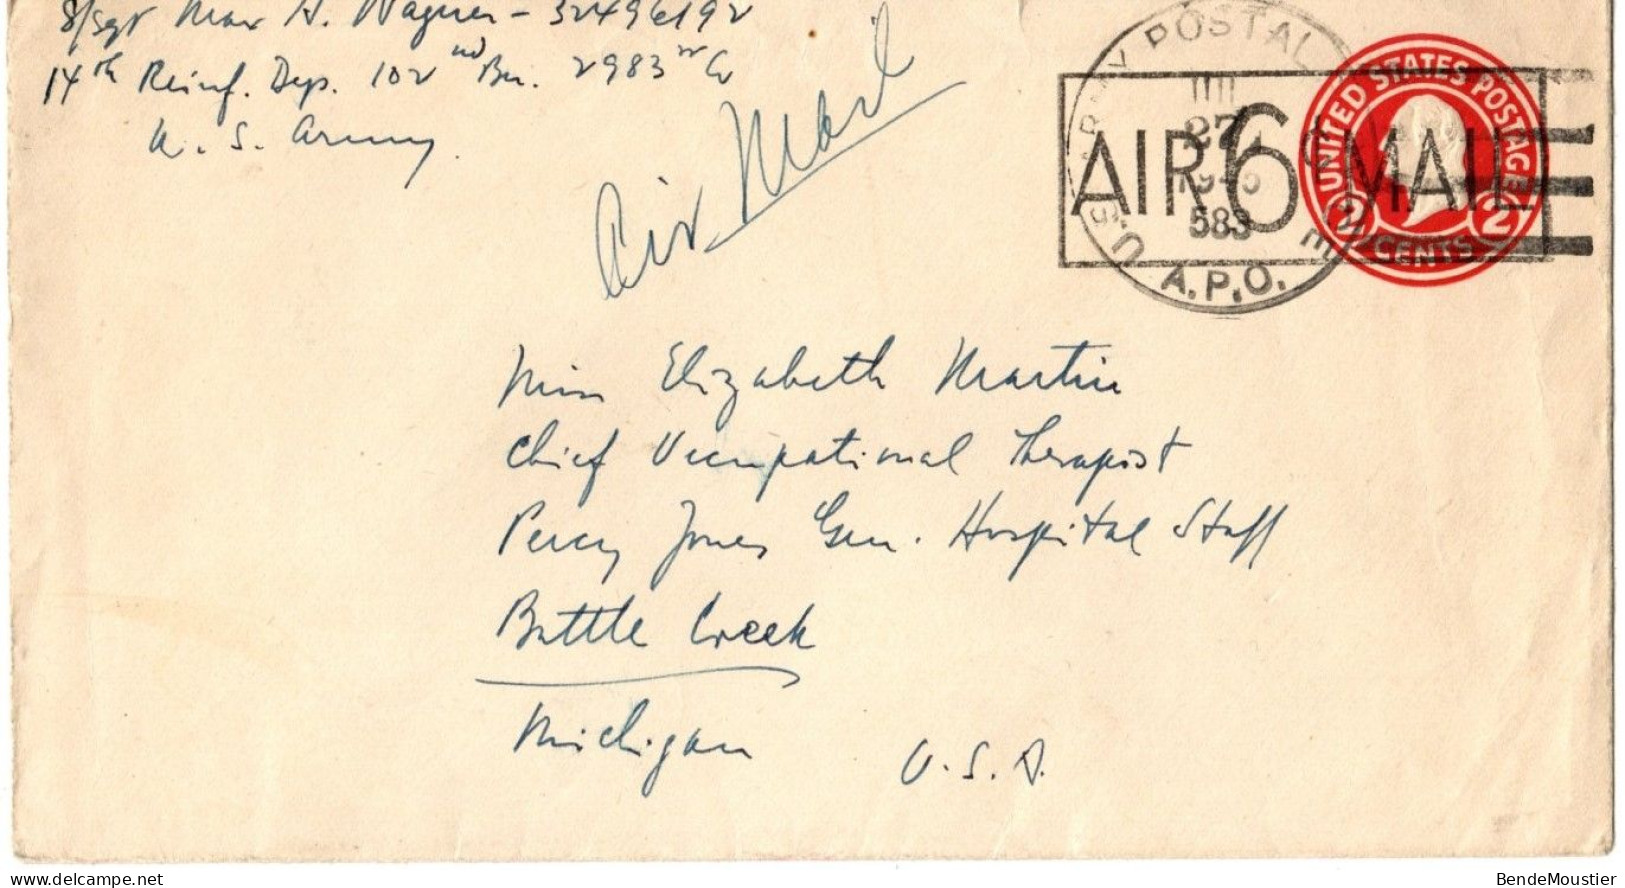 S/Sgt Max H. Wagner - 32496192
14th Reinf. Dep. 102nd Bn. 2983rd Co
U. S. Army
Air Mail
ARMY POSTAL SERVICE
27
583
U.S. A.P.O.
AIR 6 MAIL
UNITED STATES POSTAGE
2 CENTS 2
Miss Elizabeth Martin
Chief Occupational Therapist
Percy Jones Gen. Hospital Staff
Battle Creek
Michigan
U. S. A.
delcampe.net
BendeMoustier